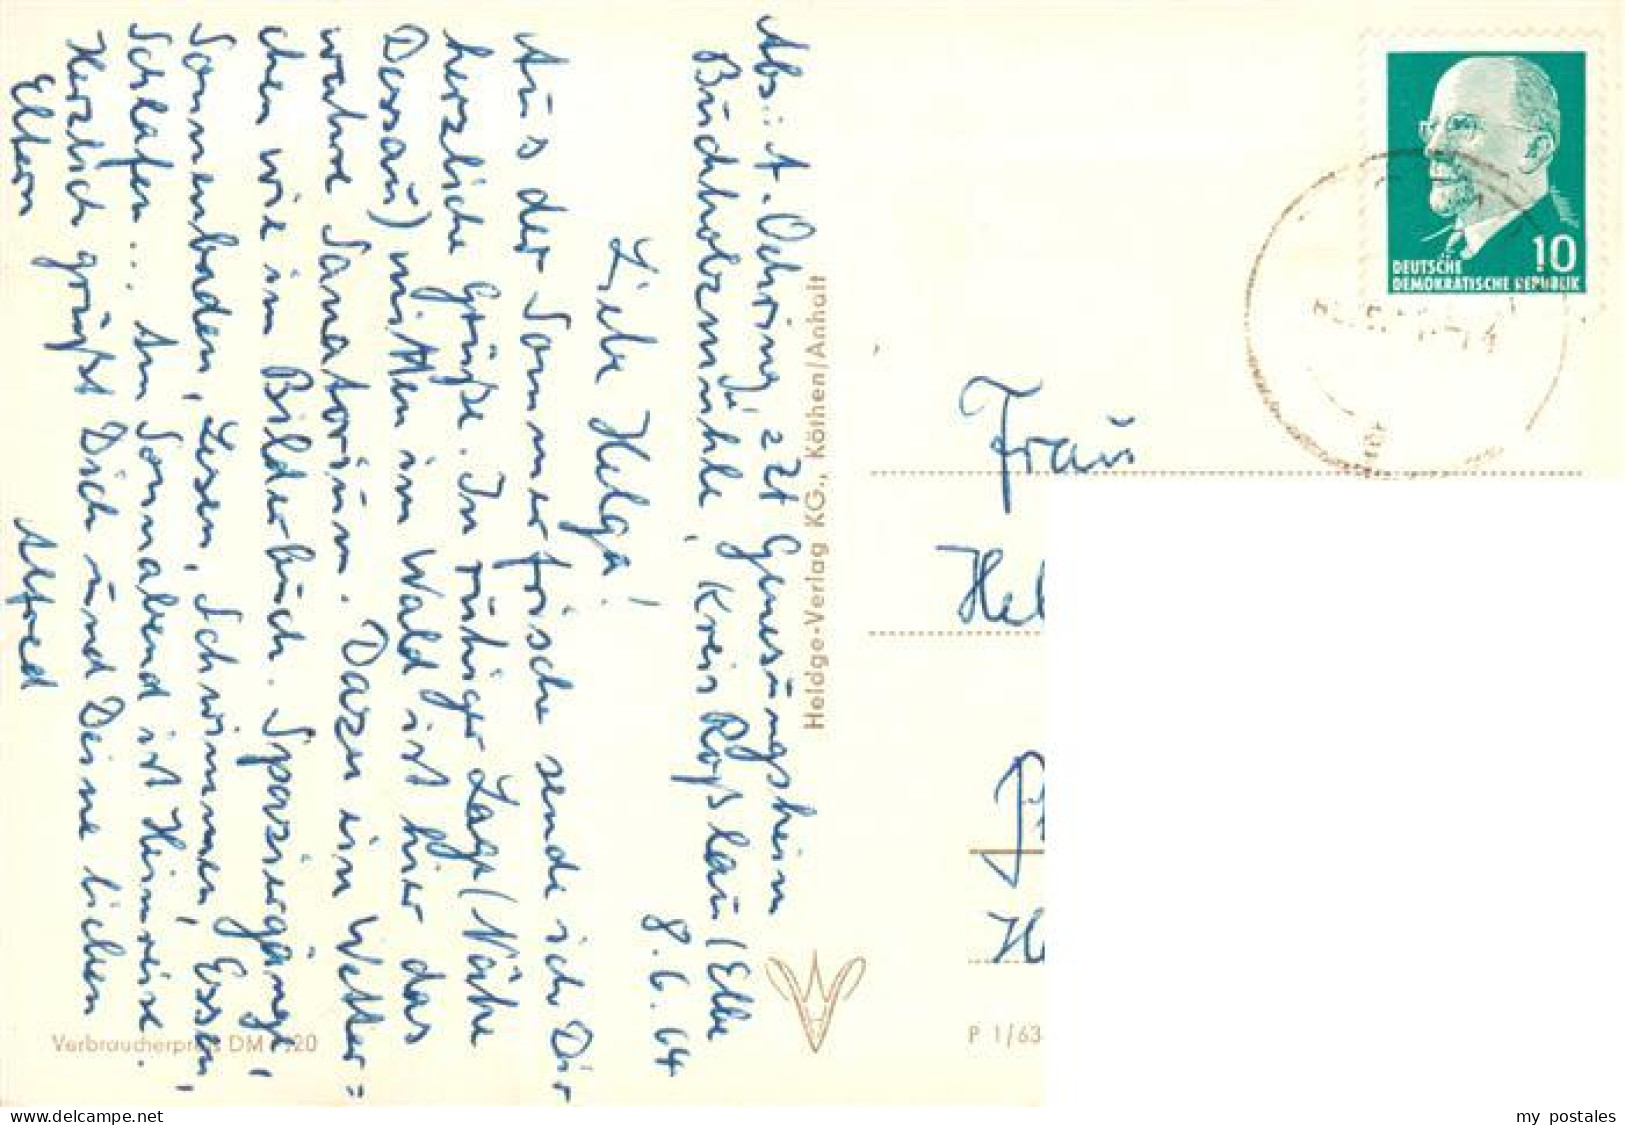 Abs.: A. Oehring, z Zt Genesungsheim
Buchholzmühle, Kreis Roßlau/Elbe
8.6.64
Liebe Helga!
Aus der Sommerfrische sende ich Dir
herzliche Grüße. In ruhiger Lage (Nähe
Dessau) mitten im Wald ist hier das
wahre Sanatorium. Dazu ein Wetter=
chen wie im Bilderbuch. Spaziergänge,
Sonnenbaden, Lesen, Schwimmen, Essen,
Schlafen... Am Sonnabend ist Heimreise.
Herzlich grüßt Dich und Deine lieben
Eltern
Alfred
Heldge-Verlag KG., Köthen/Anhalt
Verbraucherpreis DM 0,20
10
DEUTSCHE
DEMOKRATISCHE REPUBLIK
Frau
Hel
H
P 1/63
www.delcampe.net
my_postales